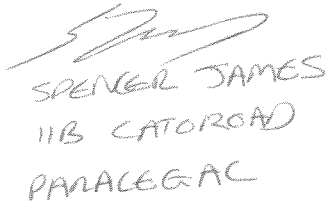 SPENCER JAMES
11B CATO ROAD
PARALEGAL